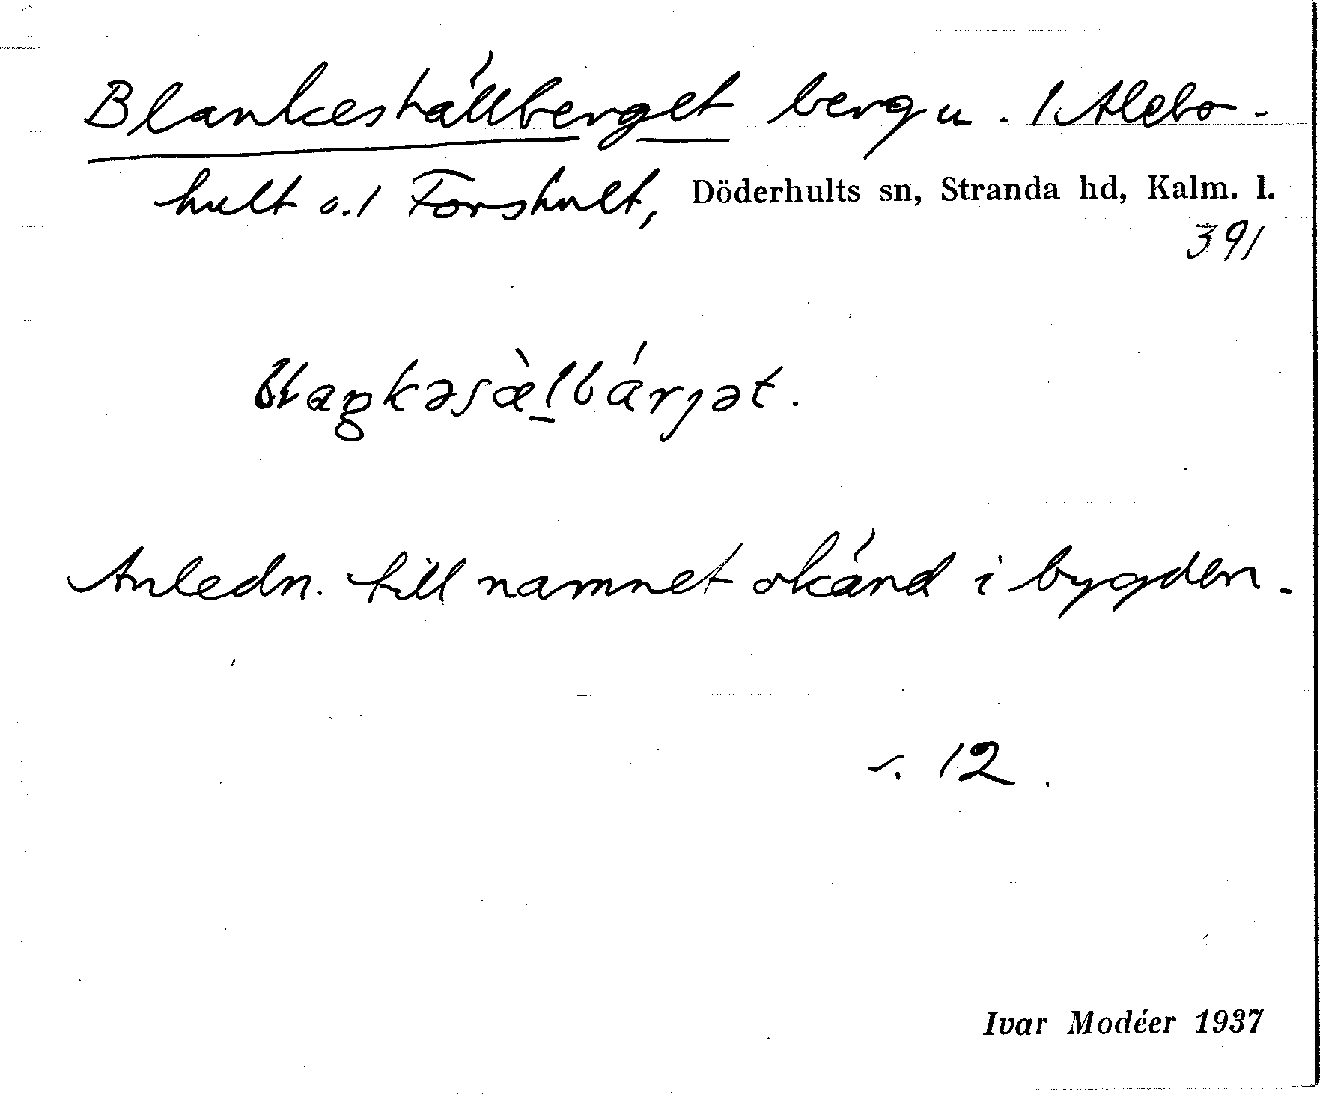 Blankeshällberget berg u. 1 Alebo-
hult o. 1 Forshult, Döderhults sn, Stranda hd, Kalm. l.
391
blaŋkəsæ̀lbárjət.
Anledn. till namnet okänd i bygden.
s. 12.
Ivar Modéer 1937